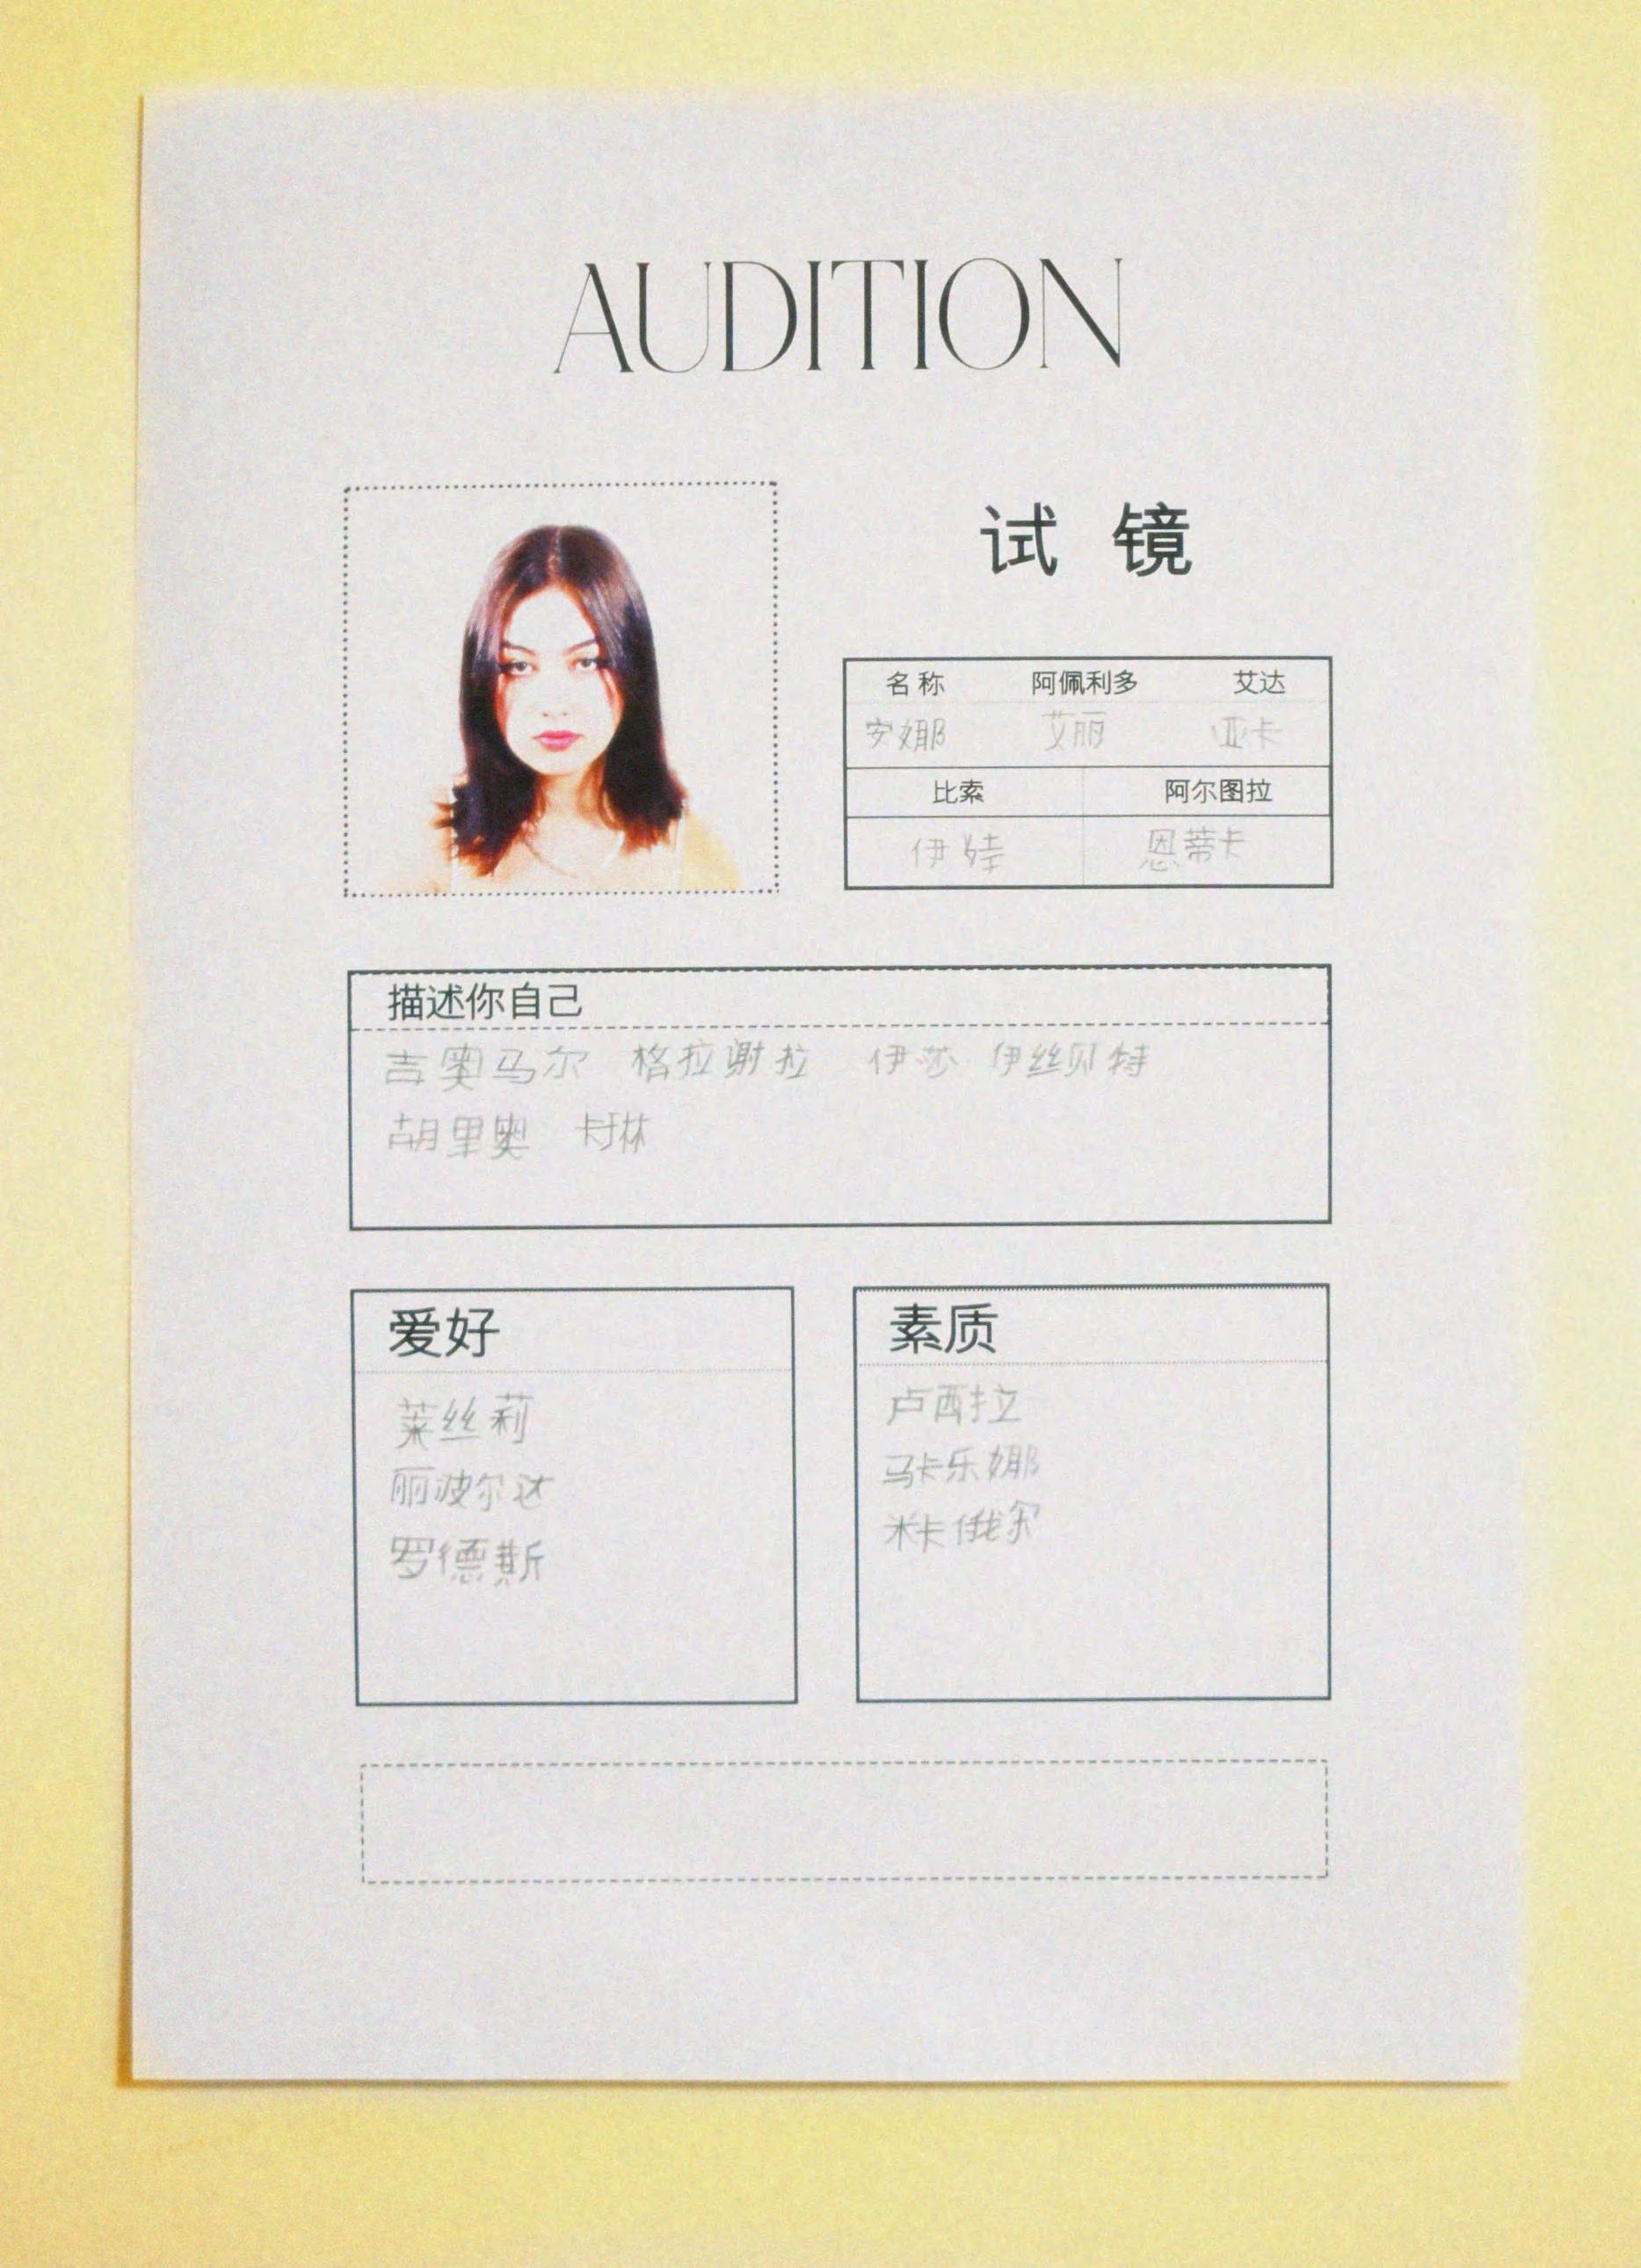 AUDITION
试 镜
名称 阿佩利多 艾达
安娜 艾丽 亚卡
比索 阿尔图拉
伊娃 恩蒂卡
描述你自己
吉奥马尔 格拉谢拉 伊莎 伊丝贝特
胡里奥 卡琳
爱好
莱丝莉
丽波尔达
罗德斯
素质
卢西拉
马卡乐娜
米卡俄尔